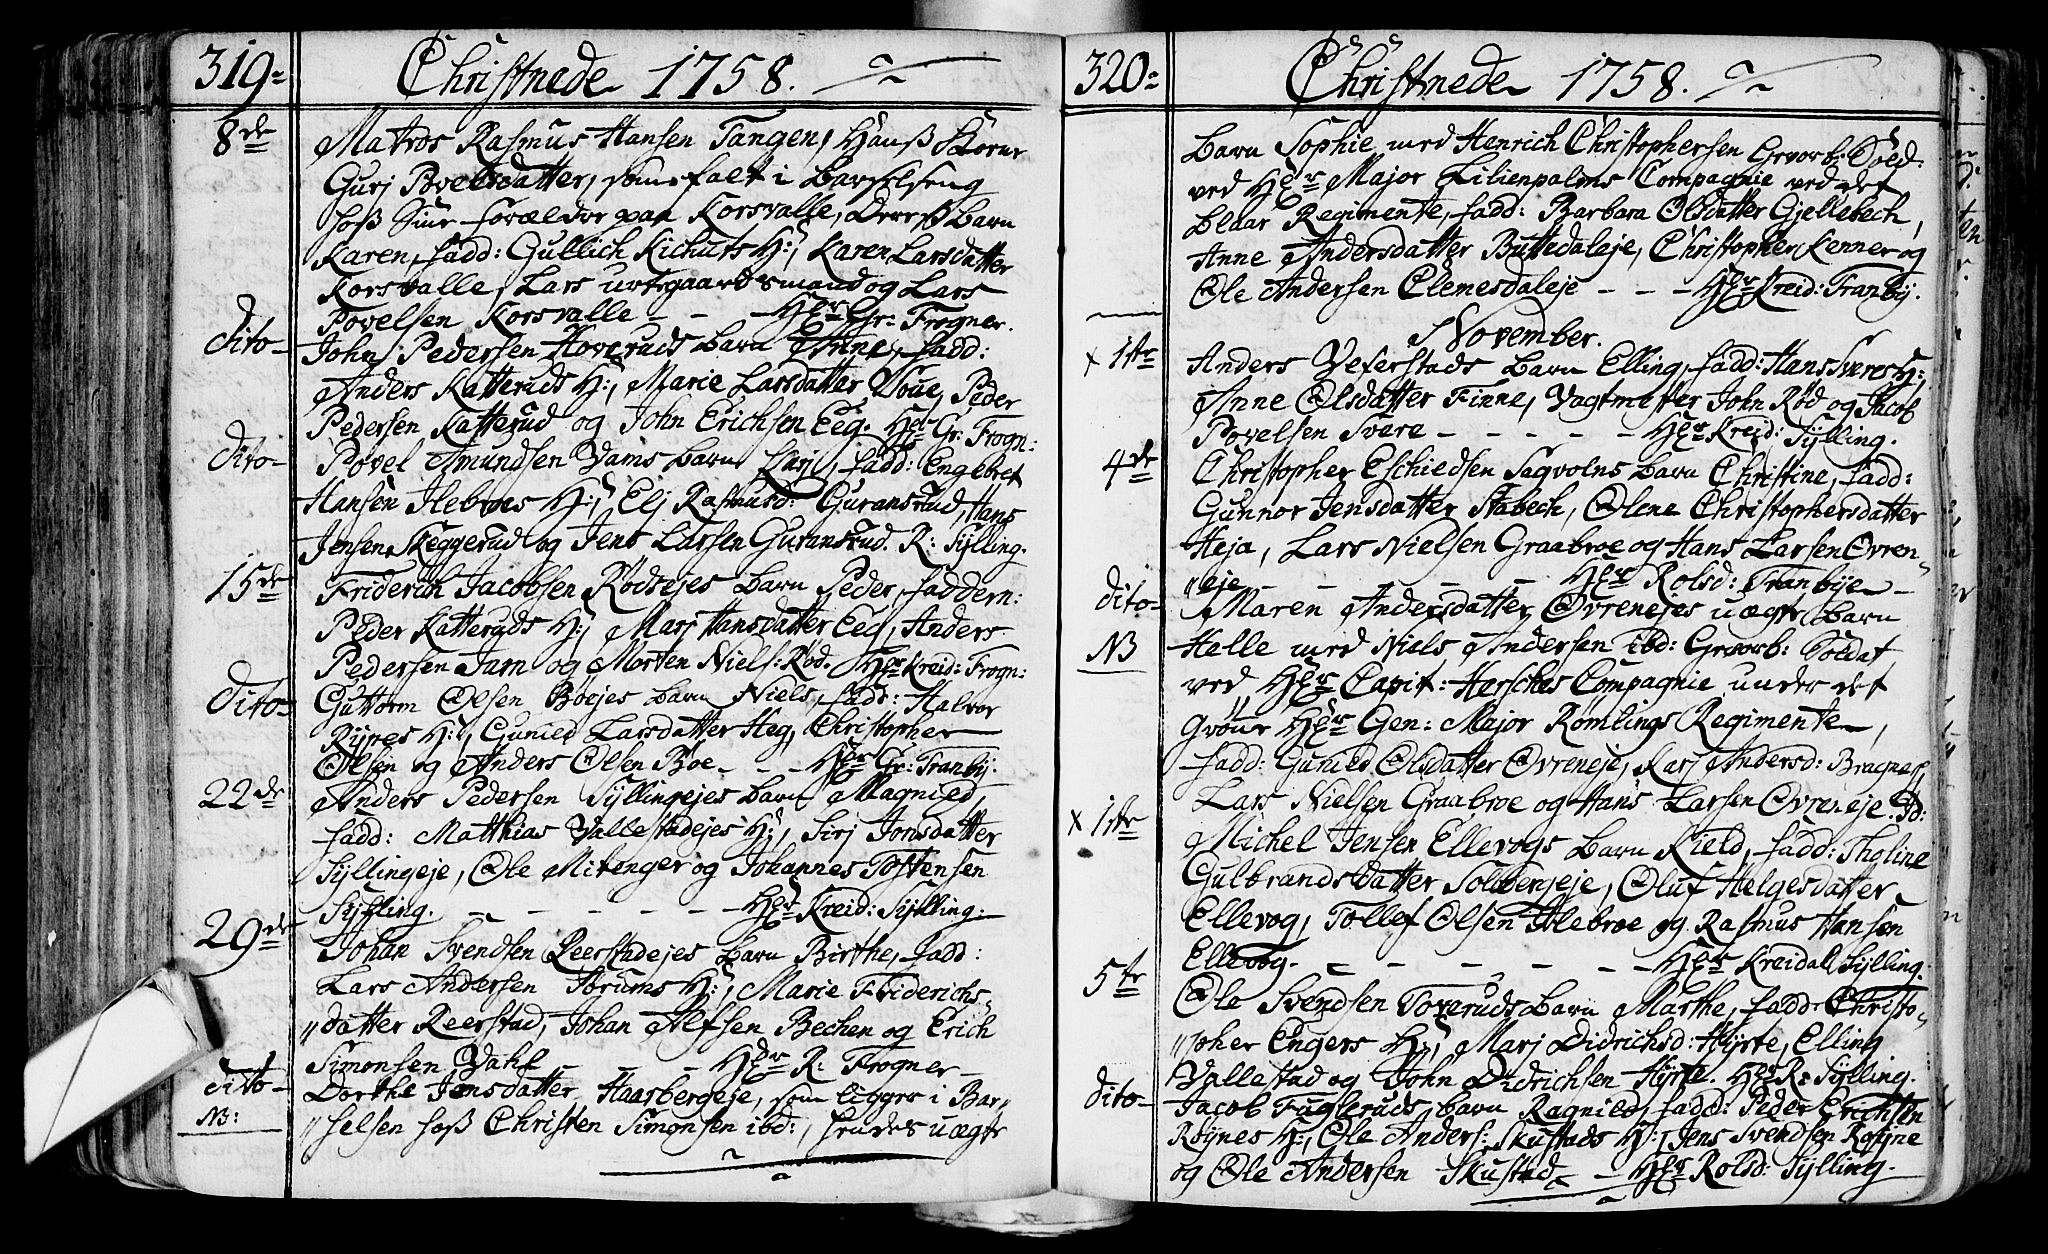 319 Christnede 1758.
8de Matros Rasmus Hansen Tangen, Hans Kone
Guri Povelsdatter, som falt i Barselseng
hoß Sine Forældre paa Korsvalle, Deres barn
Karen, fadd: Gullich Kichuts H:, Karen Larsdatter
Korsvalle, Lars urtegaardsmand og Lars
Povelsen Korsvalle - - Hr Gr: Frogner.
dito John Pedersen Hoveruds barn Anne, fadd:
Anders Katteruds H:, Marie Larsdatter Poue, Peder
Pedersen Katterud og John Erichsen Eeg. Hr Gr: Frogn:
dito Povel Amundsen Vams barn Lars, fadd: Engebret
Hansen Hebroes H:, Elj Rasmusd: Guransrud, Hans
Jensen Skeggerud og Jens Larsen Guransrud. R: Sylling.
15de Friderich Jacobsen Rødsejes barn Peder, faddern:
Peder Katteruds H:, Marj Hansdatter Eeg, Anders
Pedersen Jam og Morten Niels: Rød. Hr Kreid: Frogn:
dito Guttorm Olsen Boejes barn Niels, fadd: Halvor
Rynes H:, Gunied Larsdatter Heg, Christopher
Olsen og Anders Olsen Boe. - - Hr Gr: Tranby.
22de Anders Pedersen Syllingejes barn Magnild,
fadd: Matthias Vallestadejes H:, Sirj Jonsdatter
Syllingeje, Ole Mitenger og Johannes Tostensen
Sylling. - - - - - Hr Kreid: Sylling.
29de Johan Svendsen Reerstadejes barn Birthe, fadd:
Lars Andersen Ibrums H:, Marie Friderichs-
"datter Reerstad, Johan Alfsen Bechen og Erich
Simonsen Dahl - - - Hr R: Frogner -
dito Dorthe Jensdatter Haarbergeje, som ligger i Bar-
NB: "selsen hoß Christen Simonsen ibd:, hendes uægte
320 Christnede 1758.
barn Sophie med Henrich Christophersen Gevorb: Sold:
ved Hr Major Lilienpalms Compagnie ved det
blaar Regimente, fadd: Barbara Olsdatter Gjellebech,
Anne Andersdatter Buttedaleje, Christopher Kenner og
Ole Andersen Clemesdaleje - - - Hr Kreid: Tranby.
November.
x 1ste Anders Veferstads barn Elling, fadd: Hans Sveres H:,
Anne Olsdatter Finne, Vagtmester John Rød og Jacob
Povelsen Svere - - - - - Hr Kreid: Sylling.
4de Christopher Eschiedsen Sagvolns barn Christine, fadd:
Gunnor Jensdatter Stabech, Olene Christophersdatter
Heja, Lars Nielsen Graabroe og Hans Larsen Øvren-
"eje - - - - - Hr Rolsd: Tranbye -
dito Maren Andersdatter Øvrenejes uægte barn
NB Helle med Niels Andersen ibd: Gevorb: Soldat
ved Hr Capit: Hersches Compagnie under det
grønne Hr Gen: Major Rømlings Regimente,
fadd: Gunied Olsdatter Øvreneje, Karj Andersd: Bragnes,
Lars Nielsen Graabroe og Hans Larsen Øvreneje.
x 1ste Michel Jensen Ellevogs barn Kield, fadd: Tholine
Gulbrandsdatter Solbergeje, Oluf Helgesdatter
Ellevog, Tollef Olsen Hebroe og Rasmus Hansen
Ellevog. - - - - - - Hr Kreidal Sylling.
5te Ole Svendsen Toveruds barn Marthe, fadd: Christo-
"pher Engers H:, Marj Didrichsd: Hyrte, Elling
Vallestad og John Didrichsen Hyrte. Hr R: Sylling.
dito Jacob Fugleruds barn Ragnild, fadd: Peder Erichsen
Røynes H:, Ole Anders: Skustads H:, Jens Svendsen Røyne
og Ole Andersen Skustad - Hr Rolsd: Sylling.